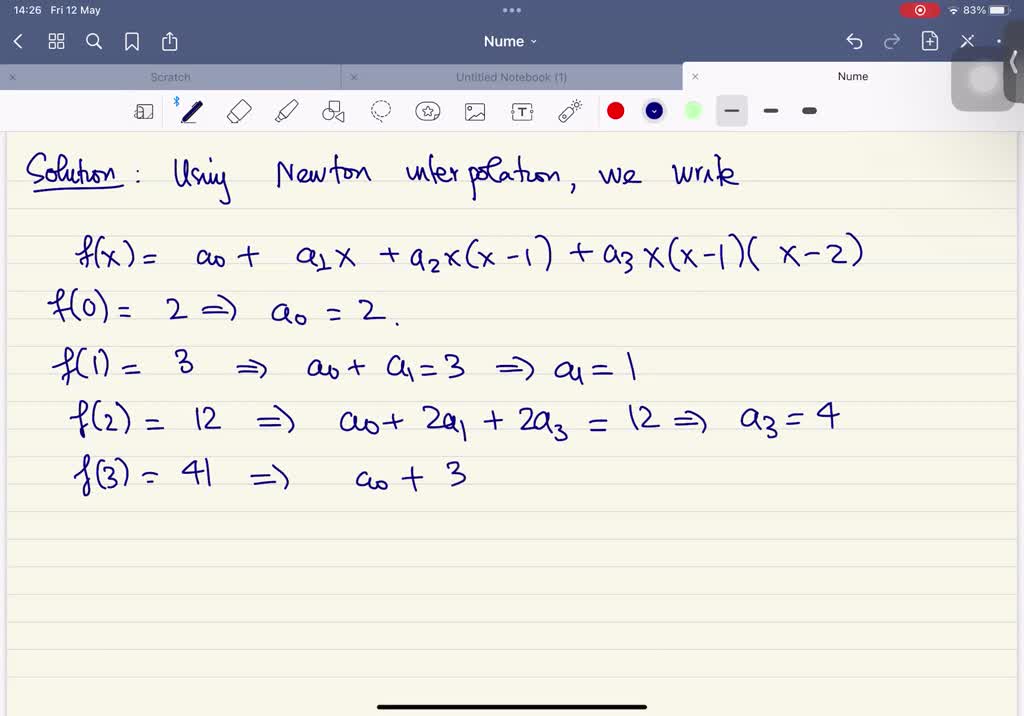 14:26 Fri 12 May 83%
Nume
Scratch Untitled Notebook (1) Nume
Solution: Using Newton interpolation, we write
f(x) = a0 + a1x + a2x(x-1) + a3x(x-1)(x-2)
f(0) = 2 => a0 = 2.
f(1) = 3 => a0 + a1 = 3 => a1 = 1
f(2) = 12 => a0 + 2a1 + 2a3 = 12 => a3 = 4
f(3) = 41 => a0 + 3